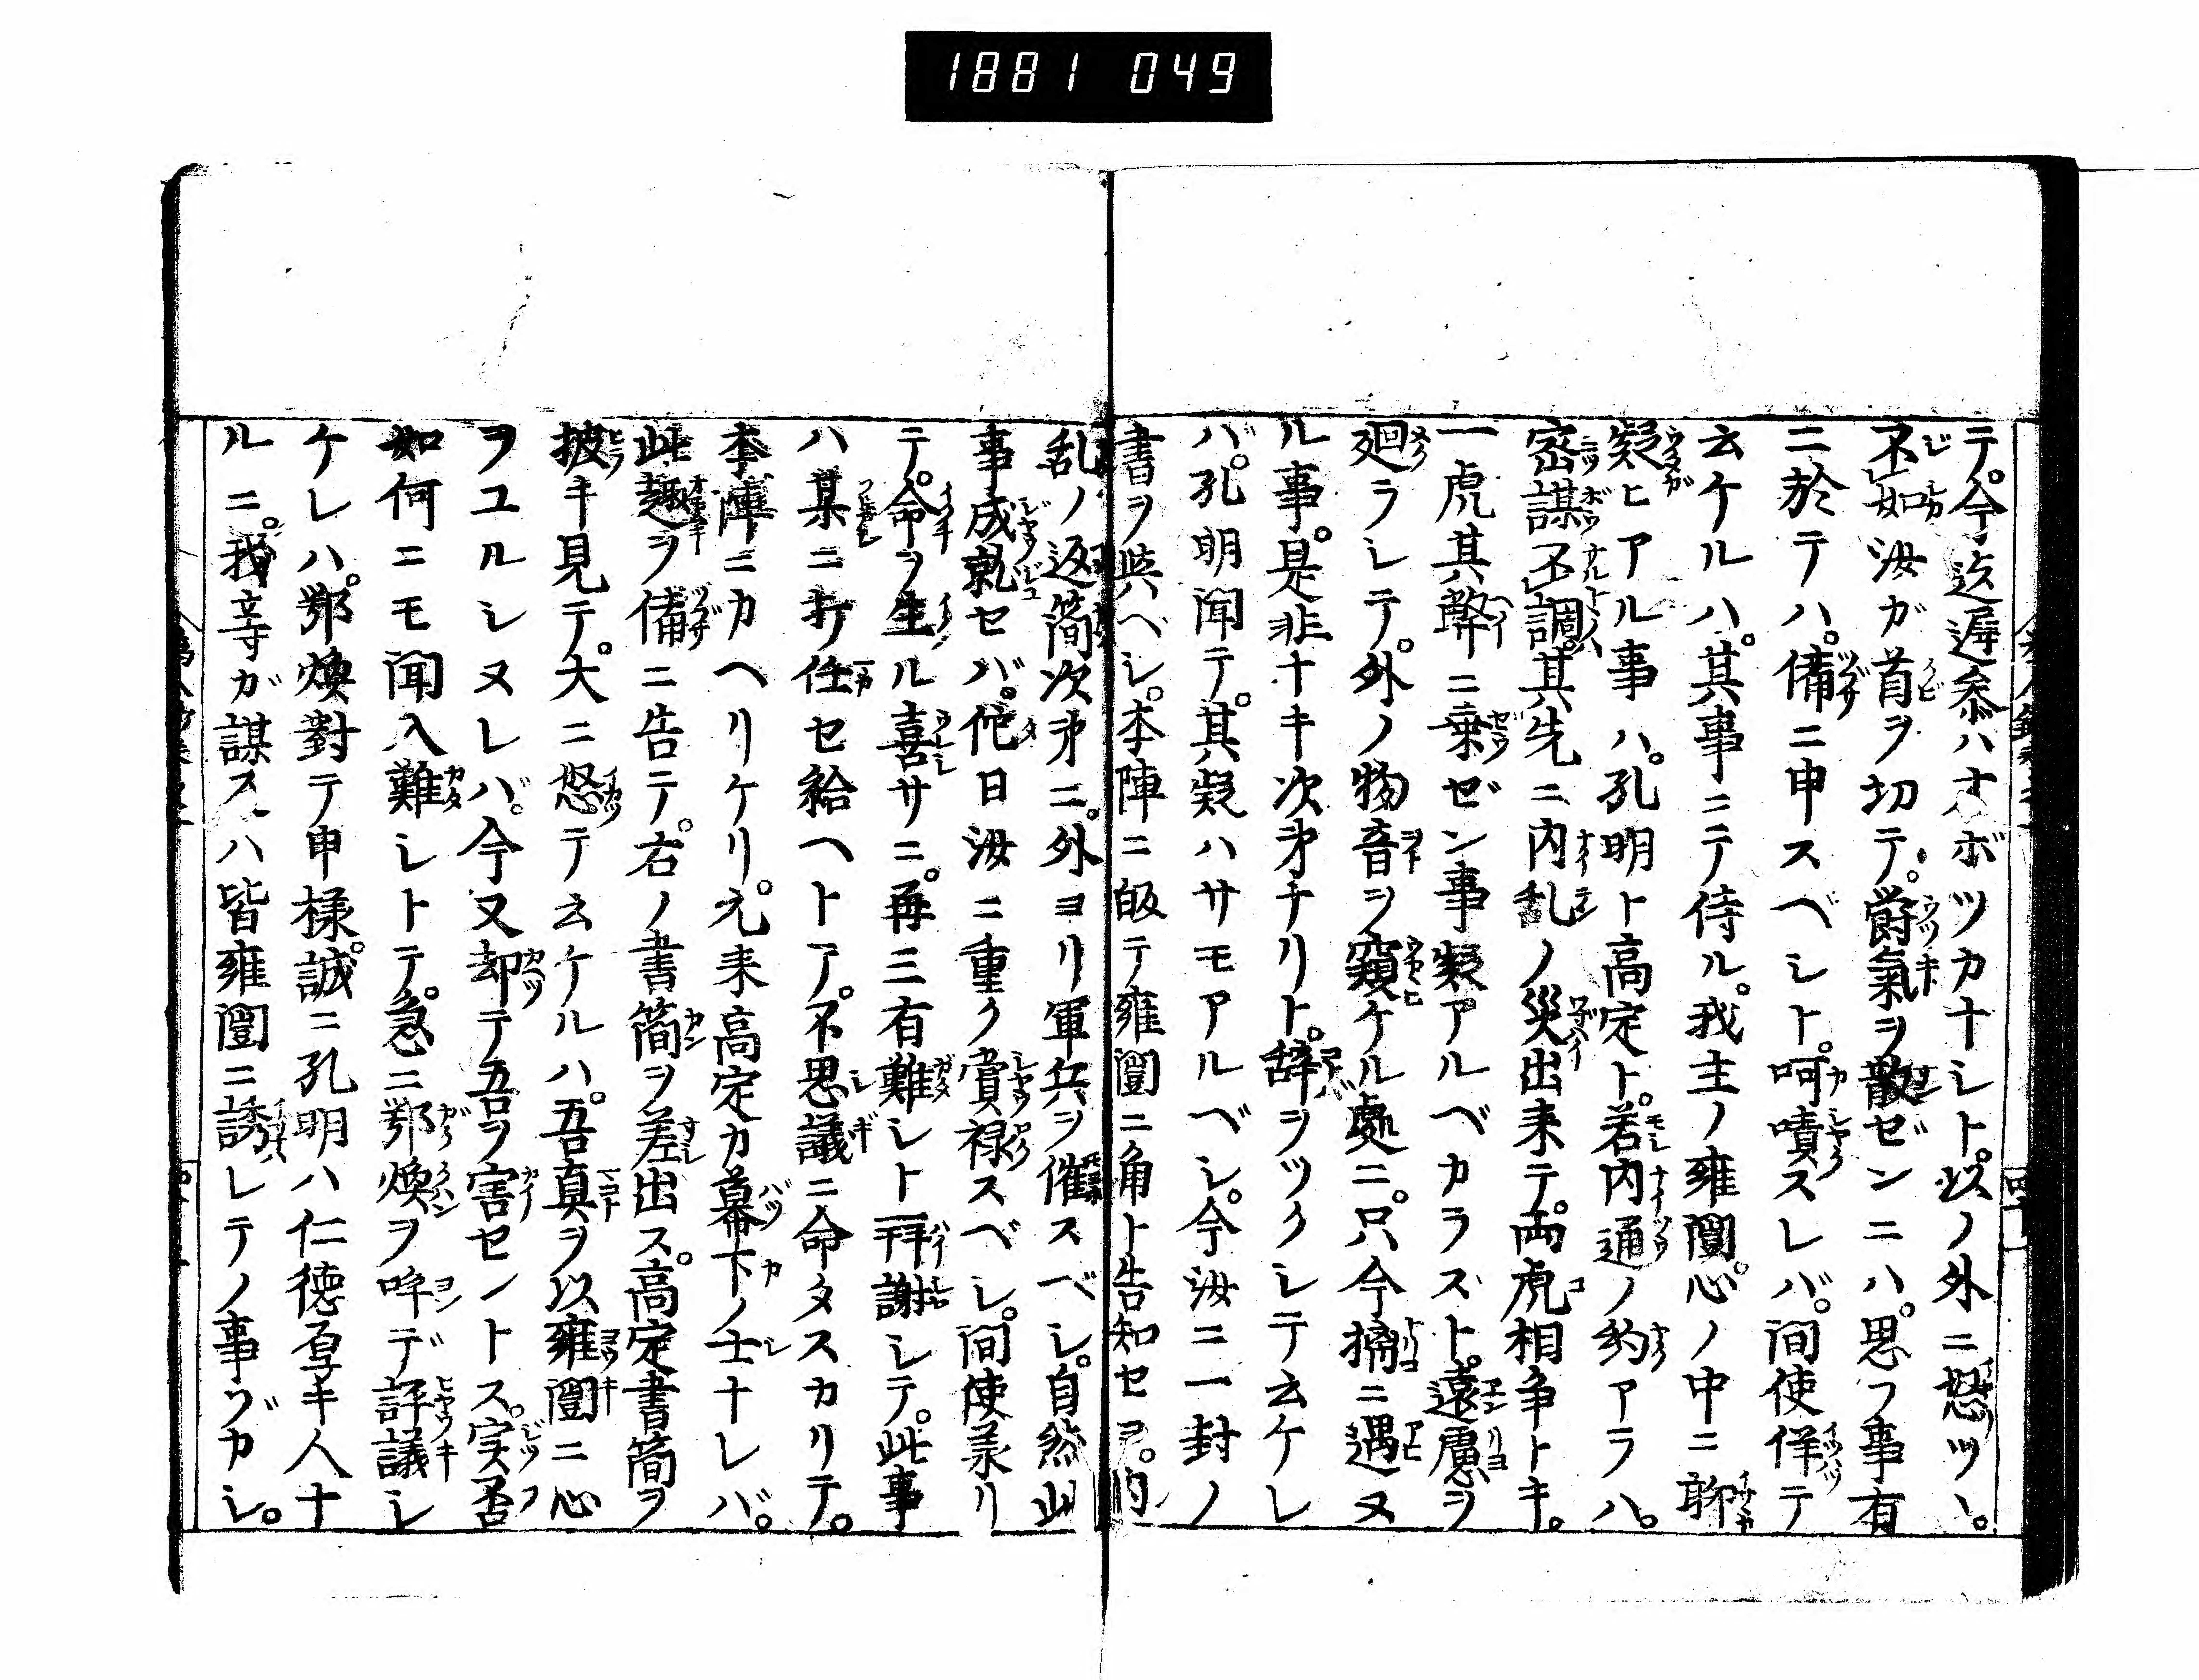 1881 049
テ。今迄遅参ハオボツカナシト。以ノ外ニ怒ツヽ。
不如汝ガ首ヲ切テ。欝氣ヲ散ゼンニハ。思フ事有
ニ於テハ。備ニ申スベシト。呵嘖スレバ。間使佯テ
云ケルハ。其事ニテ侍ル。我主ノ雍闓。心ノ中ニ聊
疑ヒアル事ハ。孔明ト高定ト。若内通ノ約アラハ。
密謀不調。其先ニ内乱ノ災出来テ。両虎相争トキ。
一虎其弊ニ乗ゼン事疑アルベカラズト。遠慮ヲ
廻ラシテ。外ノ物音ヲ窺ケル處ニ。只今擒ニ遇ヌ
ル事。是非ナキ次第ナリト。辞ヲツクシテ云ケレ
バ。孔明聞テ。其疑ハサモアルベシ。今汝ニ一封ノ
書ヲ與ベシ。本陣ニ皈テ雍闓ニ角ト告知セヨ。内
乱ノ返簡次第ニ。外ヨリ軍兵ヲ催スベシ。自然此
事成就セバ。佗日汝ニ重ク賞禄スベシ。間使羕リ
テ。命ヲ生ル喜サニ。再三有難シト拜謝シテ。此事
ハ某ニ打任セ給ヘトテ。不思議ニ命タスカリテ。
本陣ニカヘリケリ。元来高定カ幕下ノ士ナレバ。
此趣ヲ備ニ告テ。右ノ書簡ヲ差出ス。高定書簡ヲ
披キ見テ。大ニ怒テ云ケルハ。吾真ヲ以雍闓ニ心
ヲユルシヌレバ。今又却テ吾ヲ害セントス。実否
如何ニモ聞入難シトテ。急ニ鄂煥ヲ呼デ評議シ
ケレハ。鄂煥對テ申樣。誠ニ孔明ハ仁徳厚キ人ナ
ルニ。我等ガ謀スハ皆雍闓ニ誘レテノ事ゾカシ。